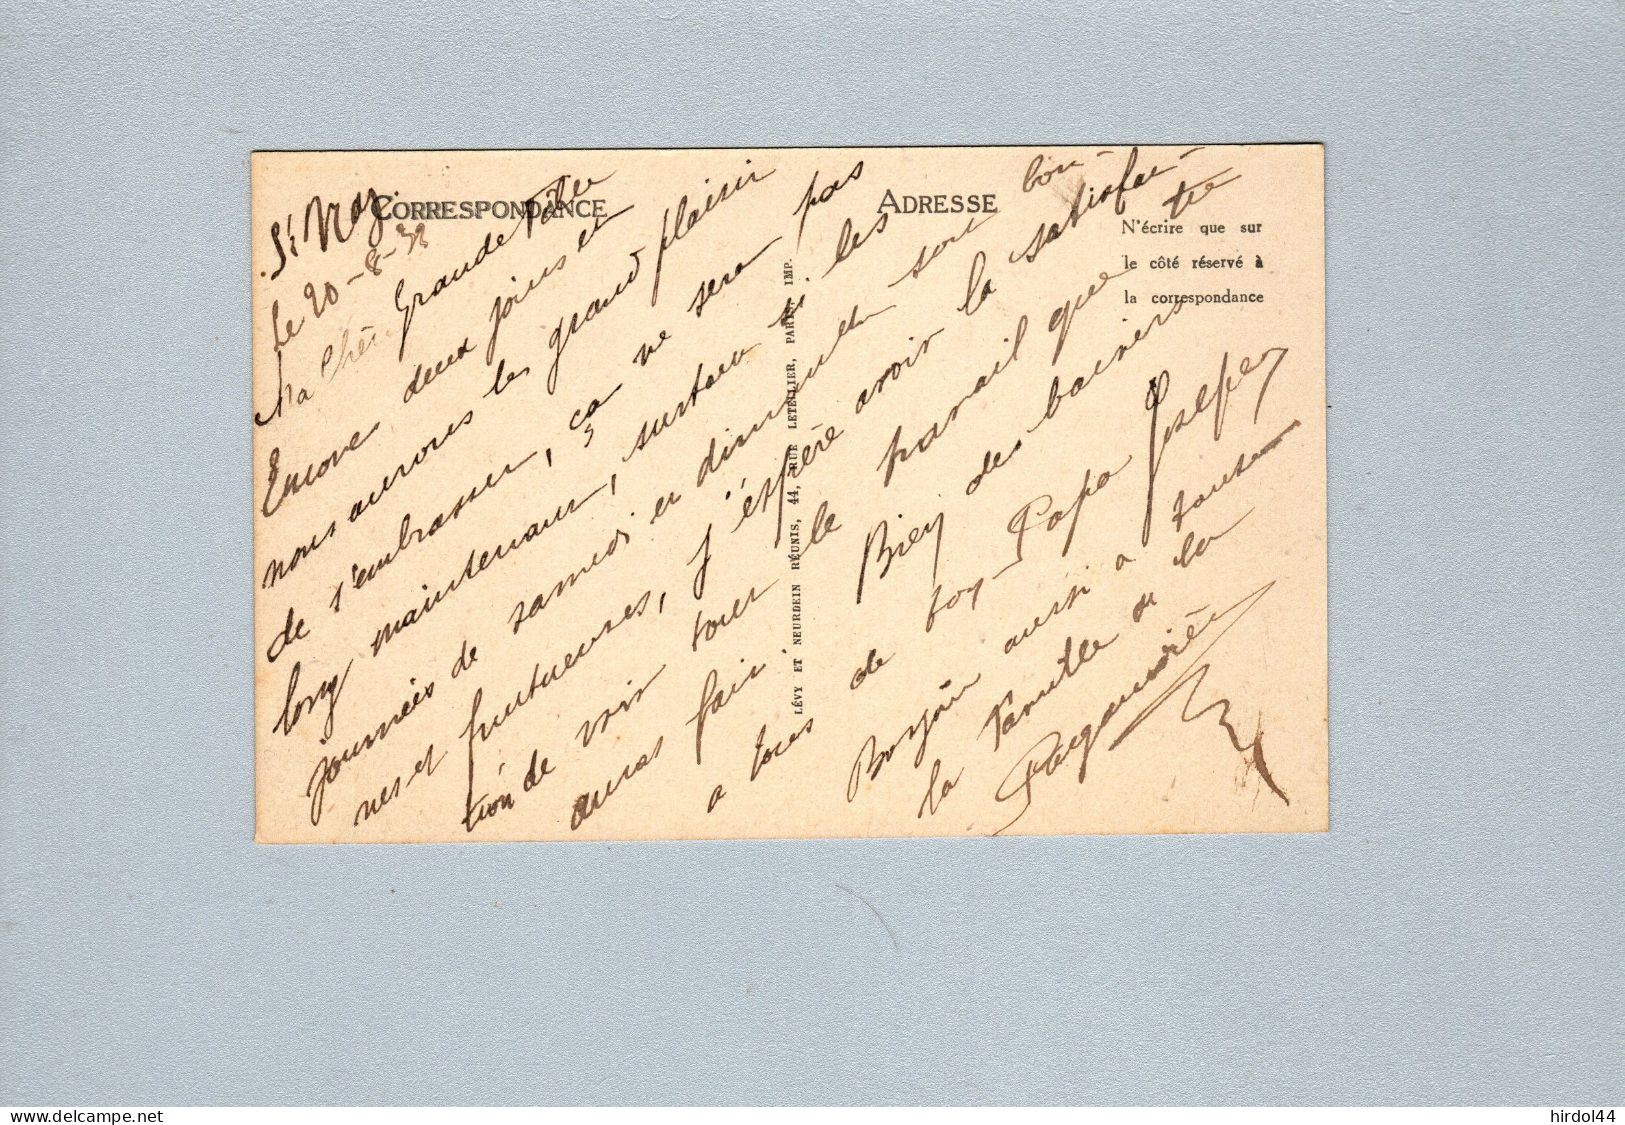 CORRESPONDANCE
ADRESSE
N'écrire que sur
le côté réservé à
la correspondance
LÉVY ET NEURDEIN RÉUNIS, 44, RUE LETELLIER, PARIS, IMP.
St Naz.
le 20-8-32
Ma Chère Grande Fille
Encore deux jours et
nous aurons le grand plaisir
de s'embrasser, ça ne sera pas
long maintenant, surtout si les
journées de samedi et dimanche sont bon-
nes et fructueuses, j'espère avoir la satisfac-
tion de voir tout le travail que tu
auras fait. Bien des baisers
a tous de ton Papa Joseph
Bonjour aussi a toute
la Famille de la